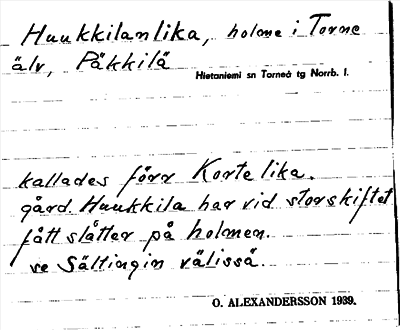 Huukkilanlika, holme i Torne
älv, Päkkilä
Hietaniemi sn Torneå tg Norrb. l.
kallades förr Kortelika.
gård Huukkila har vid storskiftet
fått slåtter på holmen.
se Sältingin välissä.
O. ALEXANDERSSON 1939.